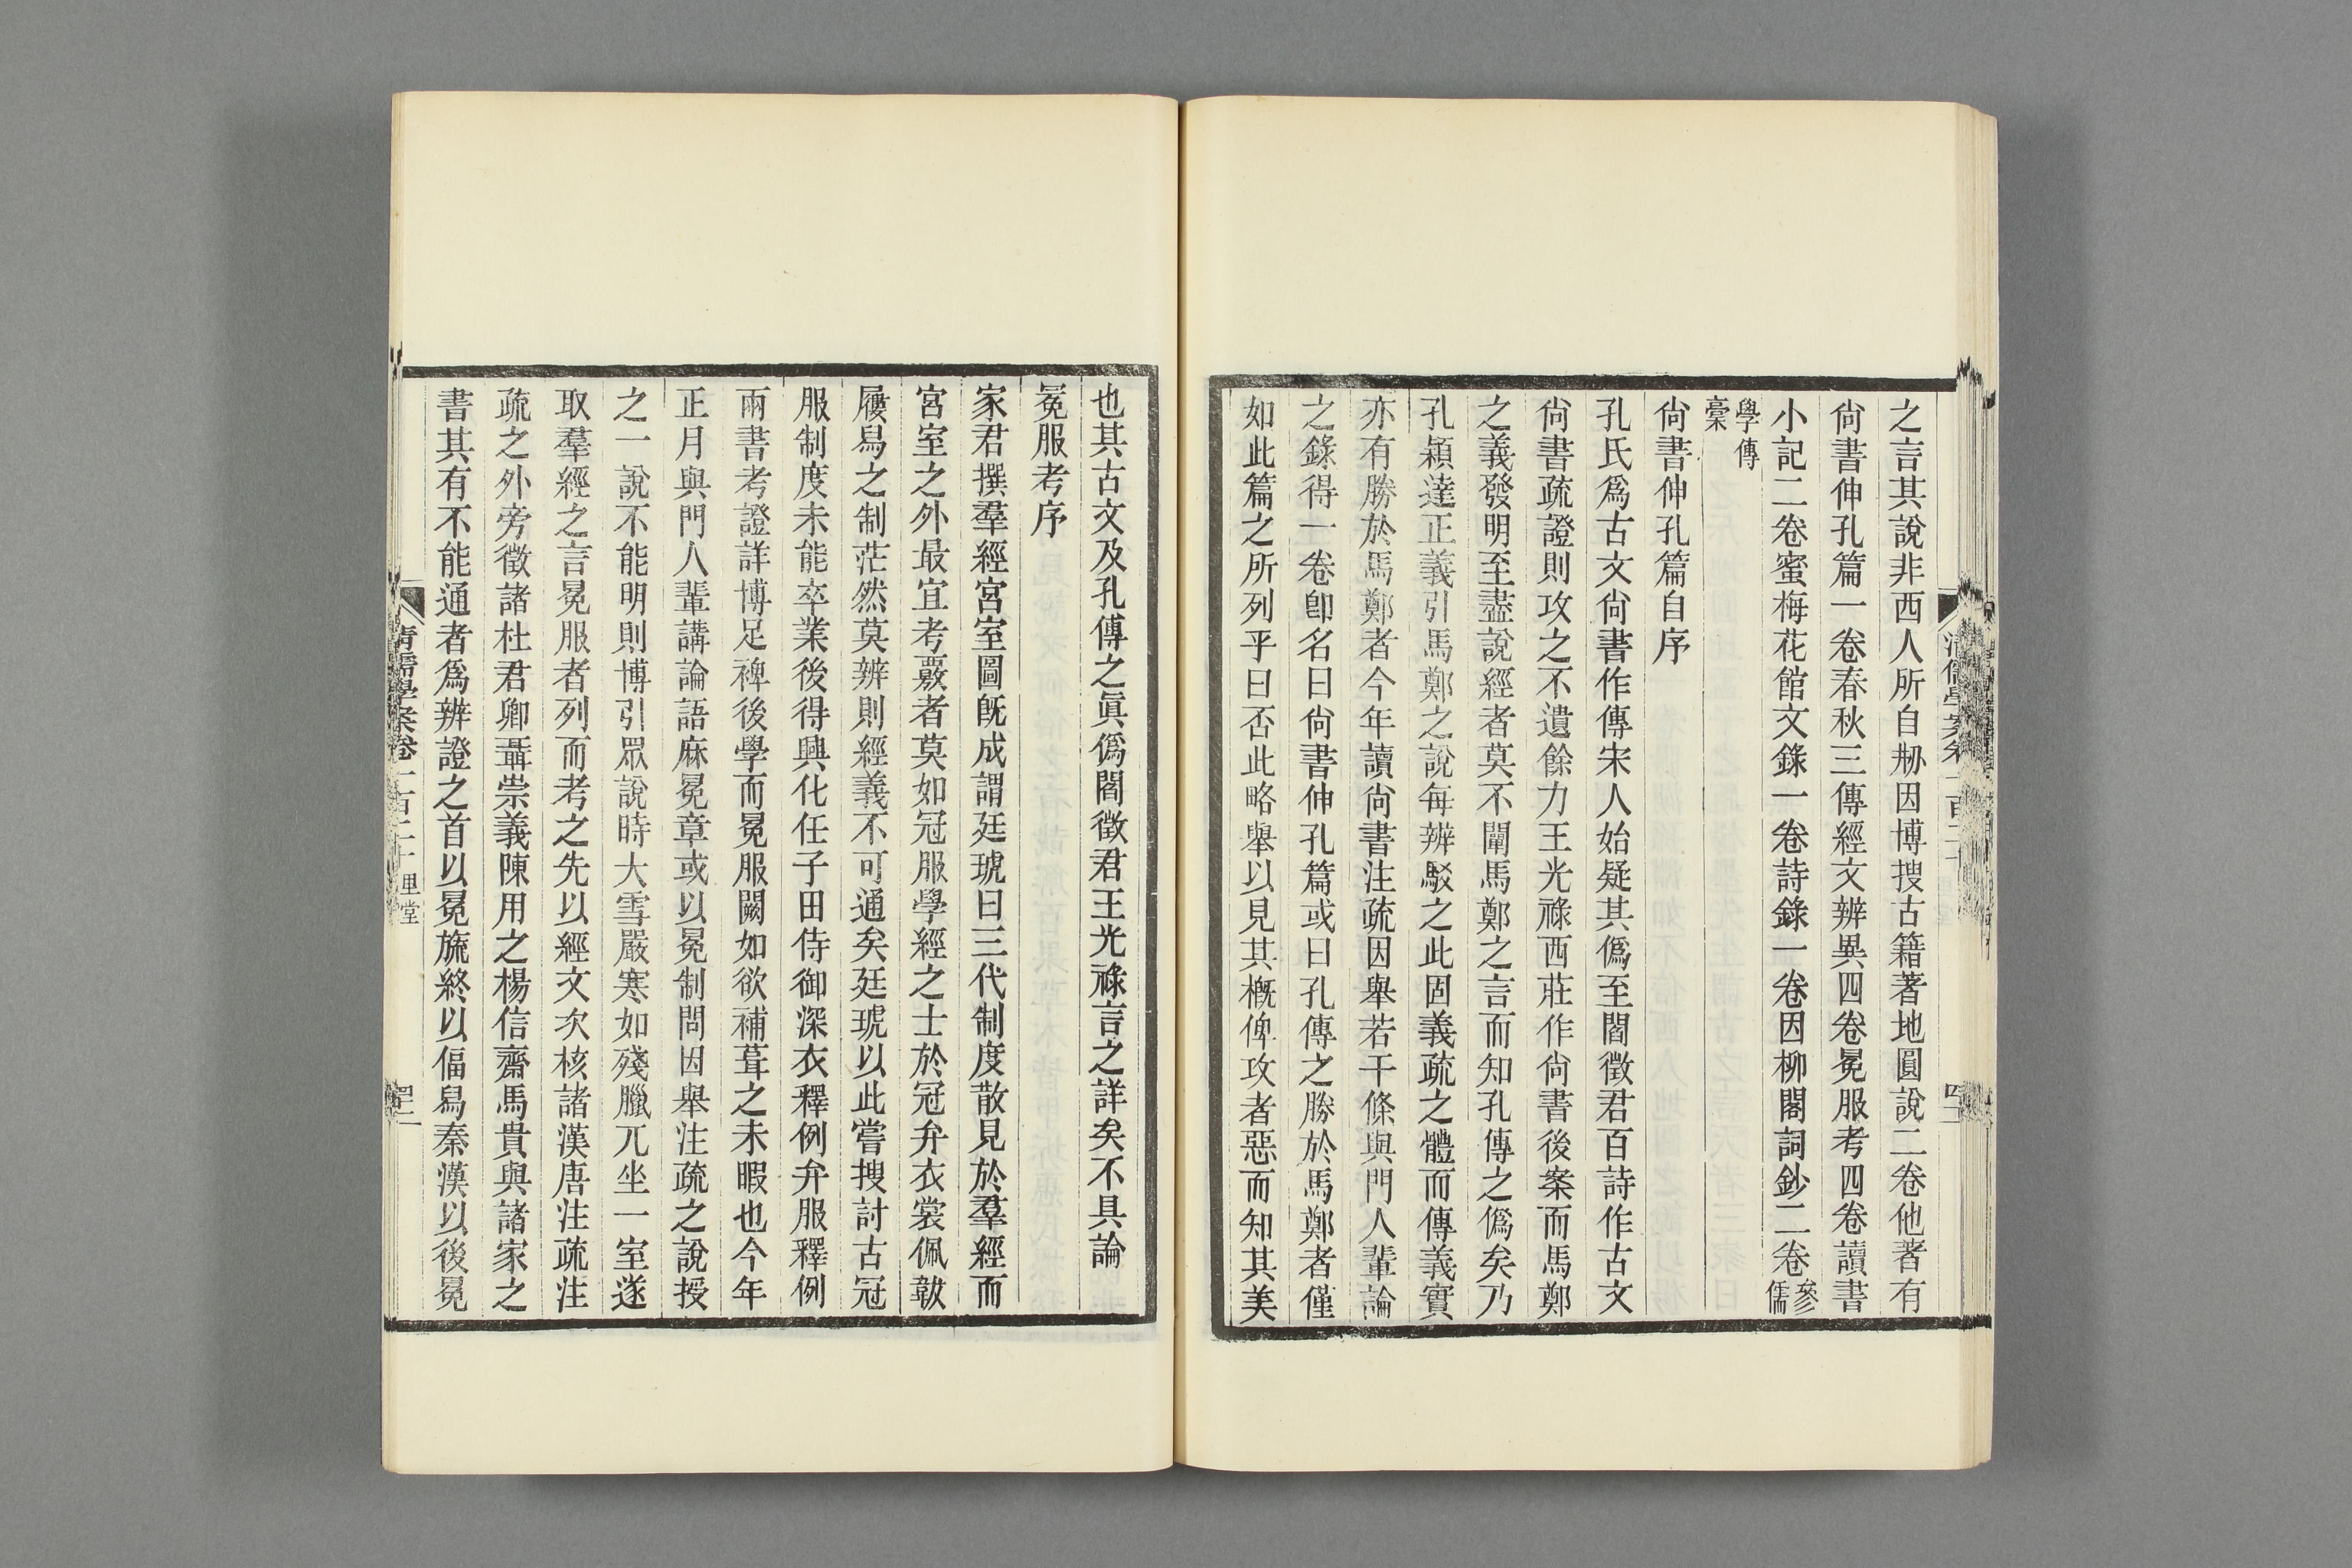 之言其說非西人所自刱因博搜古籍著地圓說二卷他著有
尙書伸孔篇一卷春秋三傳經文辨異四卷冕服考四卷讀書
小記二卷蜜梅花館文錄一卷詩錄一卷因柳閣詞鈔二卷參儒
學傳
稾
尙書伸孔篇自序
孔氏爲古文尙書作傳宋人始疑其僞至閻徵君百詩作古文
尙書疏證則攻之不遺餘力王光祿西莊作尙書後案而馬鄭
之義發明至盡說經者莫不闡馬鄭之言而知孔傳之僞矣乃
孔穎達正義引馬鄭之說每辨駁之此固義疏之體而傳義實
亦有勝於馬鄭者今年讀尙書注疏因舉若干條與門人輩論
之錄得一卷卽名曰尙書伸孔篇或曰孔傳之勝於馬鄭者僅
如此篇之所列乎曰否此略舉以見其槪俾攻者惡而知其美
也其古文及孔傳之眞僞閻徵君王光祿言之詳矣不具論
冕服考序
家君撰羣經宮室圖旣成謂廷琥曰三代制度散見於羣經而
宮室之外最宜考覈者莫如冠服學經之士於冠弁衣裳佩韍
屨舄之制茫然莫辨則經義不可通矣廷琥以此嘗搜討古冠
服制度未能卒業後得興化任子田侍御深衣釋例弁服釋例
兩書考證詳博足裨後學而冕服闕如欲補葺之未暇也今年
正月與門人輩講論語麻冕章或以冕制問因舉注疏之說授
之一說不能明則博引眾說時大雪嚴寒如殘臘兀坐一室遂
取羣經之言冕服者列而考之先以經文次核諸漢唐注疏注
疏之外旁徵諸杜君卿聶崇義陳用之楊信齋馬貴與諸家之
書其有不能通者爲辨證之首以冕旒終以偪舄秦漢以後冕
清儒學案卷一百二十 里堂